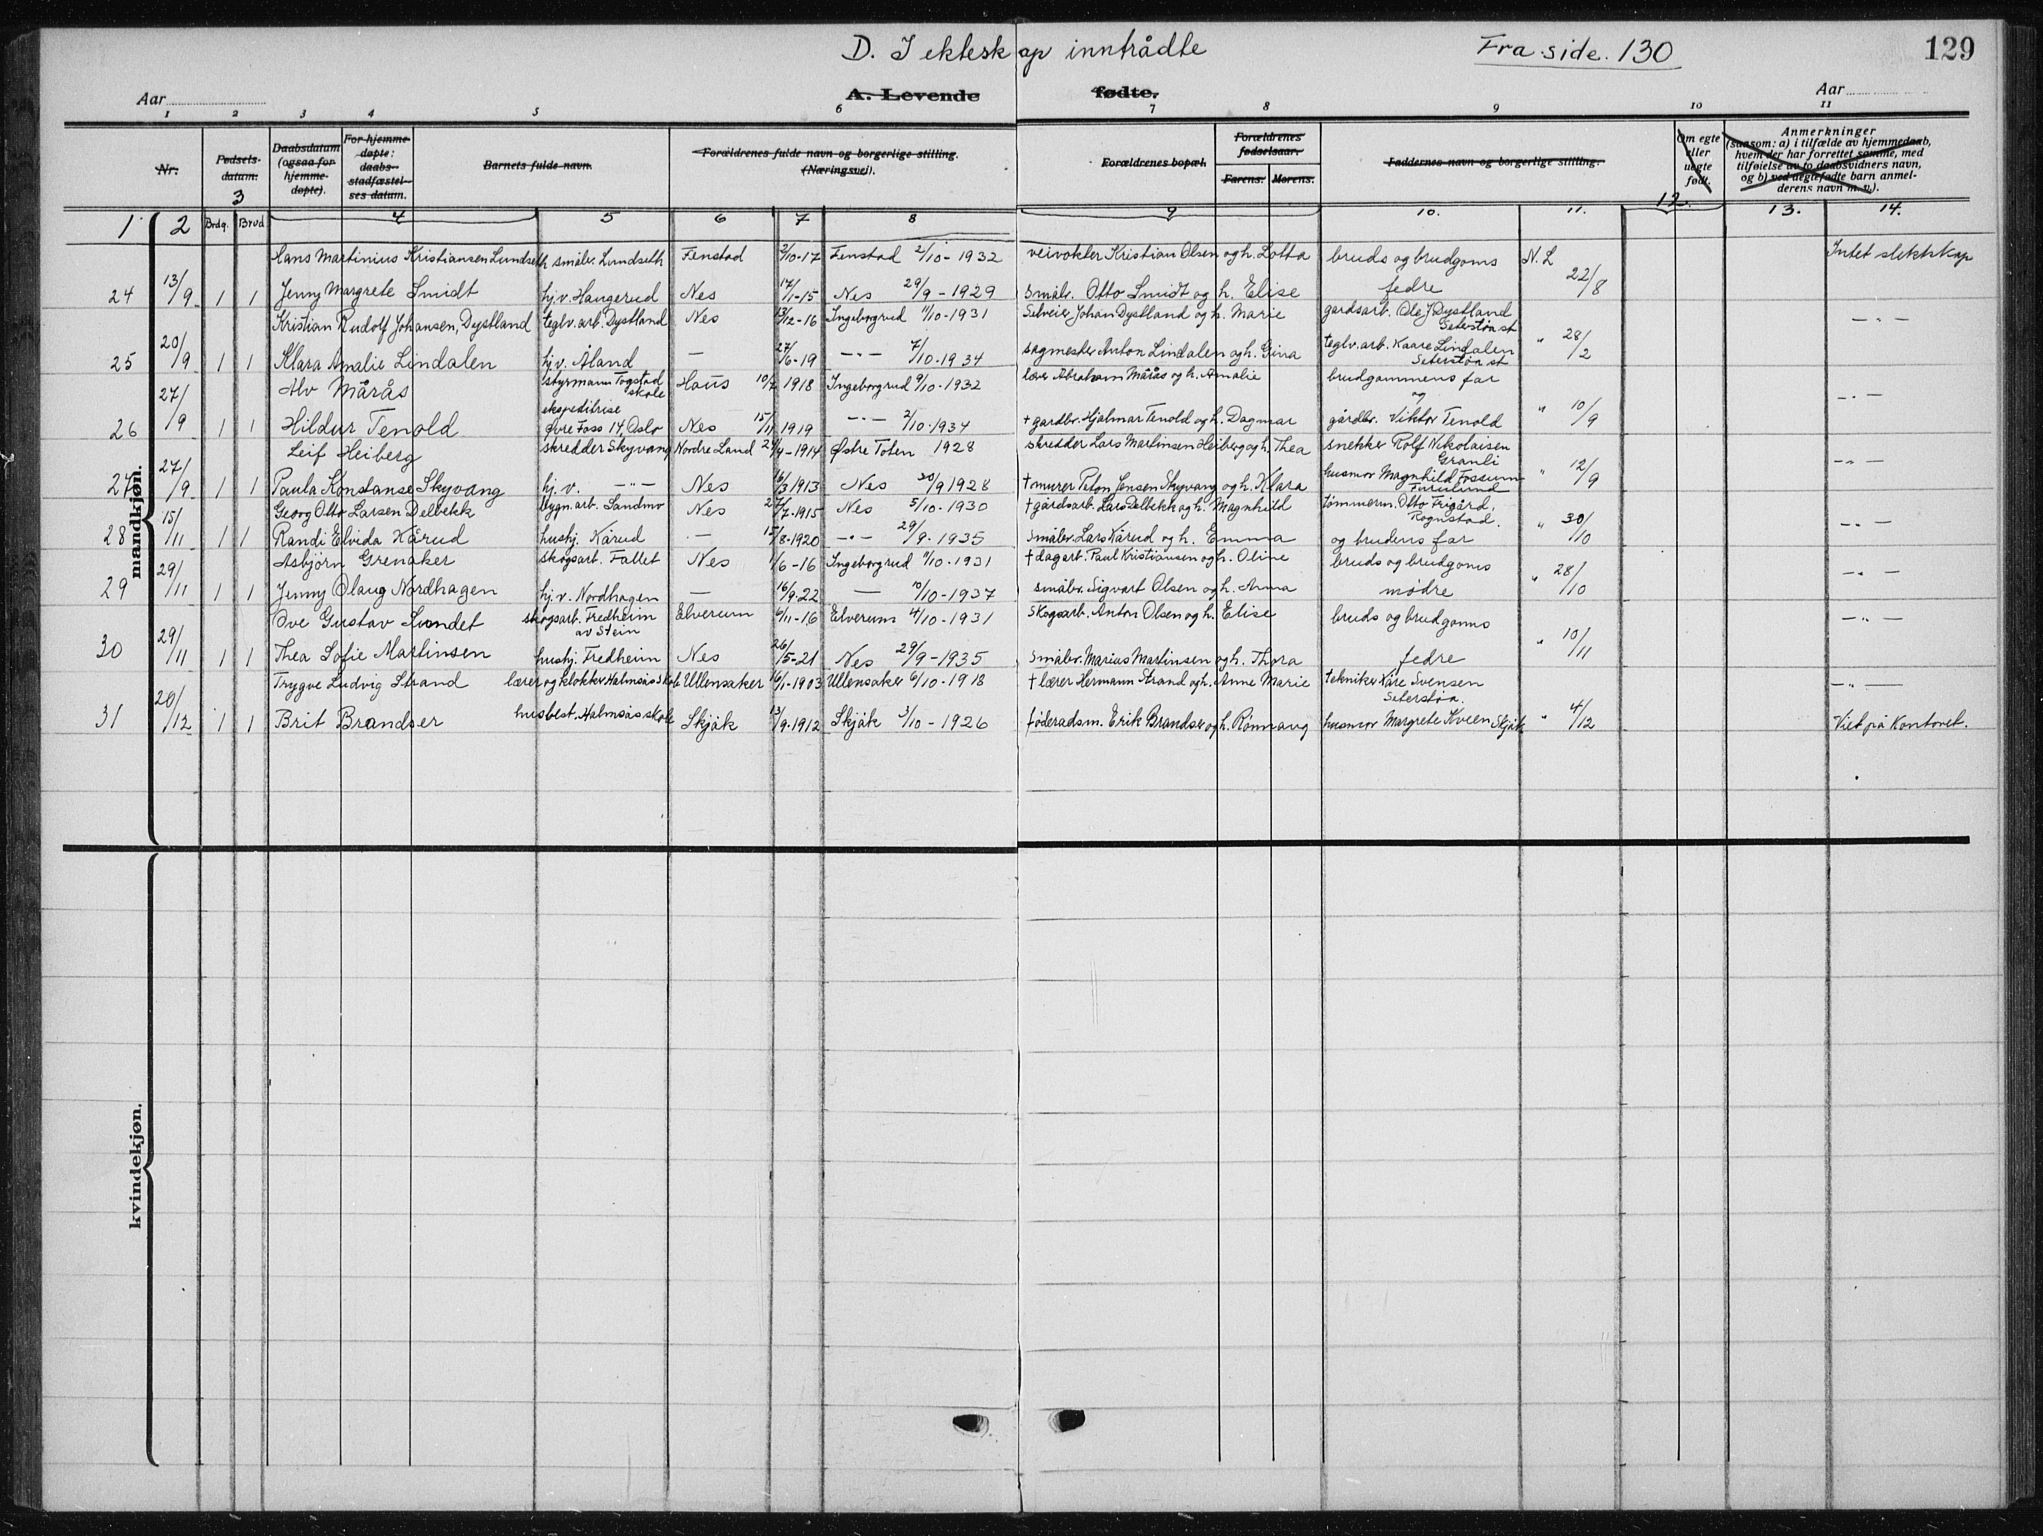 D. I ekteskap inntrådte Fra side. 130 129
Aar A. Levende fødte. Aar
1 2 3 4 5 6 7 8 9 10 11
Nr. Fødsels-datum. Daabsdatum (ogsaa for hjemme-døpte). For hjemme-døpte: daabs-stadfæstel-ses datum. Barnets fulde navn. Forældrenes fulde navn og borgerlige stilling. (Næringsvei). Forældrenes bopæl. Forældrenes fødselsaar. Farens. Morens. Faddernes navn og borgerlige stilling. Om egte eller uegte født. Anmerkninger (saasom: a) i tilfælde av hjemmedaab, hvem der har forrettet samme, med tilføielse av to daabsvidners navn, og b) ved uegtefødte barn anmel-derens navn m. v.).
1 2 3 Brdg. Brud 4 5 6 7 8 9 10. 11. 12. 13. 14.
Hans Martinius Kristiansen Lundseth småbr. Lundseth Fenstad 2/10-17 Fenstad 2/10-1932 veivokter Kristian Olsen og h. Lotta bruds og brudgoms N. L Intet slektskap
24 13/9 1 1 Jenny Margrete Smidt hj. v. Haugerud Nes 17/1-15 Nes 29/9-1929 småbr. Otto Smidt og h. Elise fedre 22/8
Kristian Rudolf Johansen, Dystland teglv. arb. Dystland Nes 13/12-16 Ingeborgrud 11/10-1931 Selveier Johan Dystland og h. Marie gardsarb. Ole J Dystland Seterstøa st — " —
25 20/9 1 1 Klara Amalie Lindalen hj. v. Åland — 27/6-19 — " — 7/10-1934 sagmester Anton Lindalen og h. Gina teglv. arb. Kaare Lindalen Seterstøa st " 28/2
Alv Mårås styrmann Fogstad skole Haus 10/7 1918 Ingeborgrud 9/10-1932 lærer Abraham Mårås og h. Amalie brudgommens far og — " —
26 27/9 1 1 Hildur Tenold ekspeditrise Øvre Foss 14 Oslo Nes 15/11 1919 — " — 2/10-1934 + gardbr. Hjalmar Tenold og h. Dagmar gårdbr. Viktor Tenold " 10/9
Leif Heiberg skredder Skyvang Nordre Land 24/4-1914 Østre Toten 1928 skredder Lars Martinsen Heiberg og h. Thea snekker Rolf Nikolaisen Granli — " —
27 27/9 1 1 Paula Konstanse Skyvang hj. v. — " — Nes 16/3 1913 Nes 30/9 1928 + murer Peton Jensen Skyvang og h. Klara husmor Magnhild Fossum Furulund " 12/9
Georg Otto Larsen Delbekk bygn. arb. Sandmo Nes 27/7-1915 Nes 5/10-1930 + gårdsarb. Lars Delbekk og h. Magnhild tømmerm. Otto Frigård, Rognstad. — " —
28 15/11 1 1 Randi Elvida Kårud hushj. Kårud — 15/8-1920 — " — 29/9-1935 småbr. Lars Kårud og h. Emma og brudens far " 30/10
Asbjörn Grenaker skogsarb. Fallet Nes 1/6-16 Ingeborgrud 11/10-1931 + dagarb. Paul Kristiansen og h. Oline bruds og brudgoms — " —
29 29/11 1 1 Jenny Olaug Nordhagen hj. v. Nordhagen — 16/9-22 — 10/10-1937 småbr. Sigvart Olsen og h. Anna mødre " 28/10
Ove Gustav Sundet skogsarb. Fredheim av Stein Elverum 6/11-16 Elverum 4/10-1931 Skogsarb. Anton Olsen og h. Elise bruds og brudgoms — " —
30 29/11 1 1 Thea Sofie Martinsen hushj. Fredheim Nes 26/5-21 Nes 29/9-1935 Småbr. Marius Martinsen og h. Thora fedre " 10/11
Trygve Ludvig Strand lærer og klokker Halmsås skole Ullensaker 16/1-1903 Ullensaker 6/10-1918 + lærer Hermann Strand og h. Anne Marie tekniker Kåre Svensen Seterstøa — " —
31 20/12 1 1 Brit Brandser husbest. Halmsås skole Skjåk 13/9-1912 Skjåk 3/10-1926 føderadsm. Erik Brandser og h. Rønnaug husmor Margrete Kveen Skjåk " 4/12 Viet på Kontoret.
mandkjøn.
kvindekjøn.